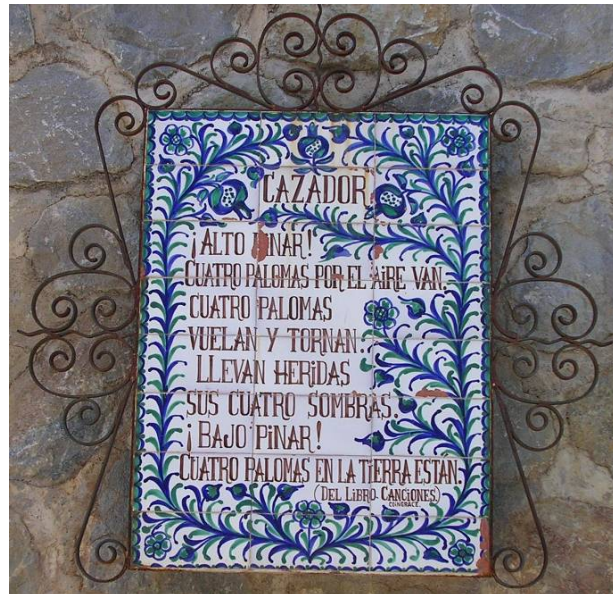 CAZADOR
¡ALTO PINAR!
CUATRO PALOMAS POR EL AIRE VAN.
CUATRO PALOMAS
VUELAN Y TORNAN.
LLEVAN HERIDAS
SUS CUATRO SOMBRAS.
¡BAJO PINAR!
CUATRO PALOMAS EN LA TIERRA ESTAN.
(DEL LIBRO CANCIONES.)